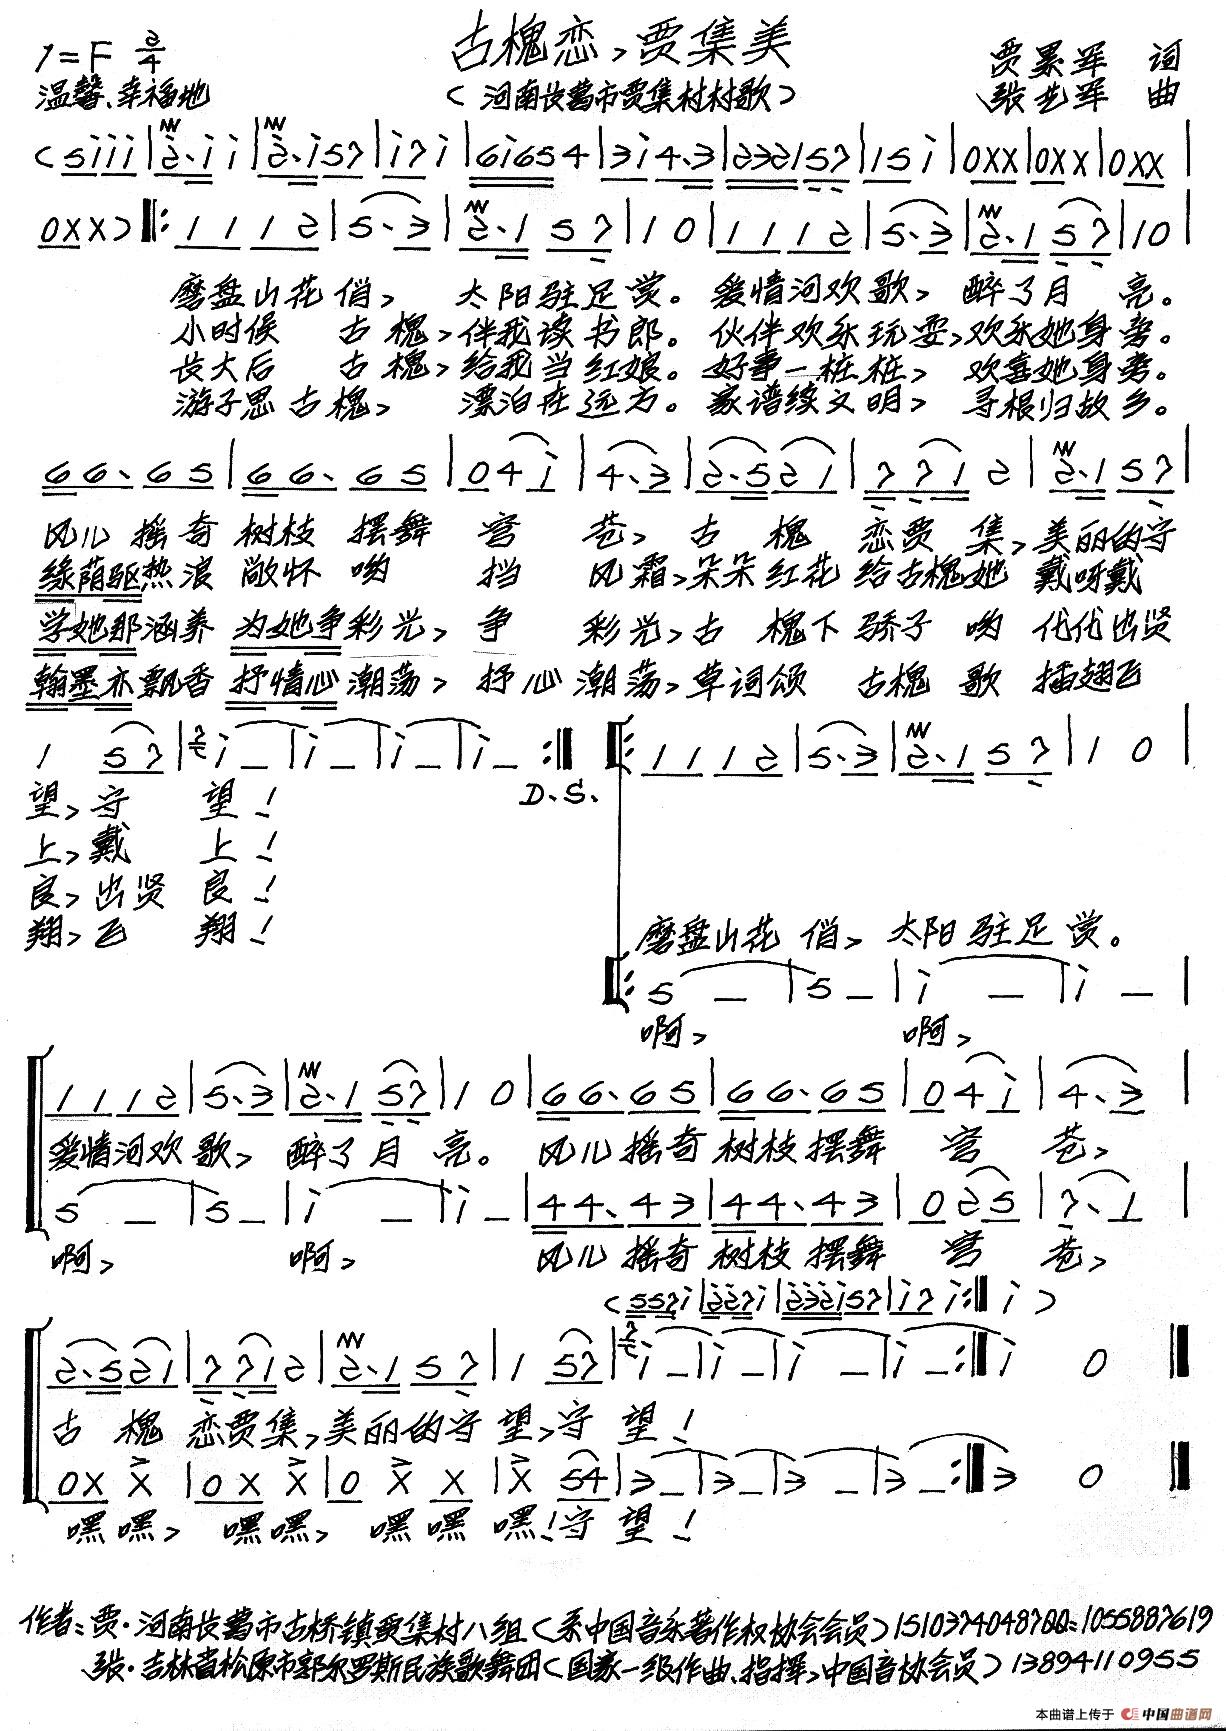 古槐恋，贾集美
1=F 2/4
温馨、幸福地
（河南长葛市贾集村村歌）
贾累军 词
张艺军 曲
磨盘山花俏， 太阳驻足赏。 爱情河欢歌， 醉了月 亮。
小时候 古 槐，伴我读书郎。 伙伴欢乐玩耍，欢乐她身旁。
长大后 古 槐，给我当红娘。 好事一桩桩， 欢喜她身旁。
游子思古槐， 漂泊在远方。 家谱续文明， 寻根归故乡。
风儿摇奇树枝摆舞 穹 苍，古 槐 恋贾集，美丽的守
绿荫驱热浪 敞怀 哟 挡 风霜，朵朵红花给古槐她 戴呀戴
学她那涵养 为她争彩光，争 彩光，古 槐下骄子 哟 代代出贤
翰墨亦飘香 抒情心潮荡，抒心潮荡，草词颂 古槐 歌 插翅飞
望，守 望！
D.S.
上，戴 上！
良，出贤 良！
翔，飞 翔！
磨盘山花俏， 太阳驻足赏。
啊， 啊，
爱情河欢歌， 醉了月 亮。 风儿摇奇树枝摆舞 穹 苍，
啊， 啊， 风儿摇奇树枝摆舞 穹 苍，
古 槐 恋贾集，美丽的守 望，守 望！
嘿嘿， 嘿嘿， 嘿 嘿 嘿！守 望！
作者：贾·河南长葛市古桥镇贾集村八组（系中国音乐著作权协会会员）15103740487QQ：1055887619
张·吉林省松原市郭尔罗斯民族歌舞团（国家一级作曲、指挥，中国音协会员）13894110955
本曲谱上传于 中国曲谱网